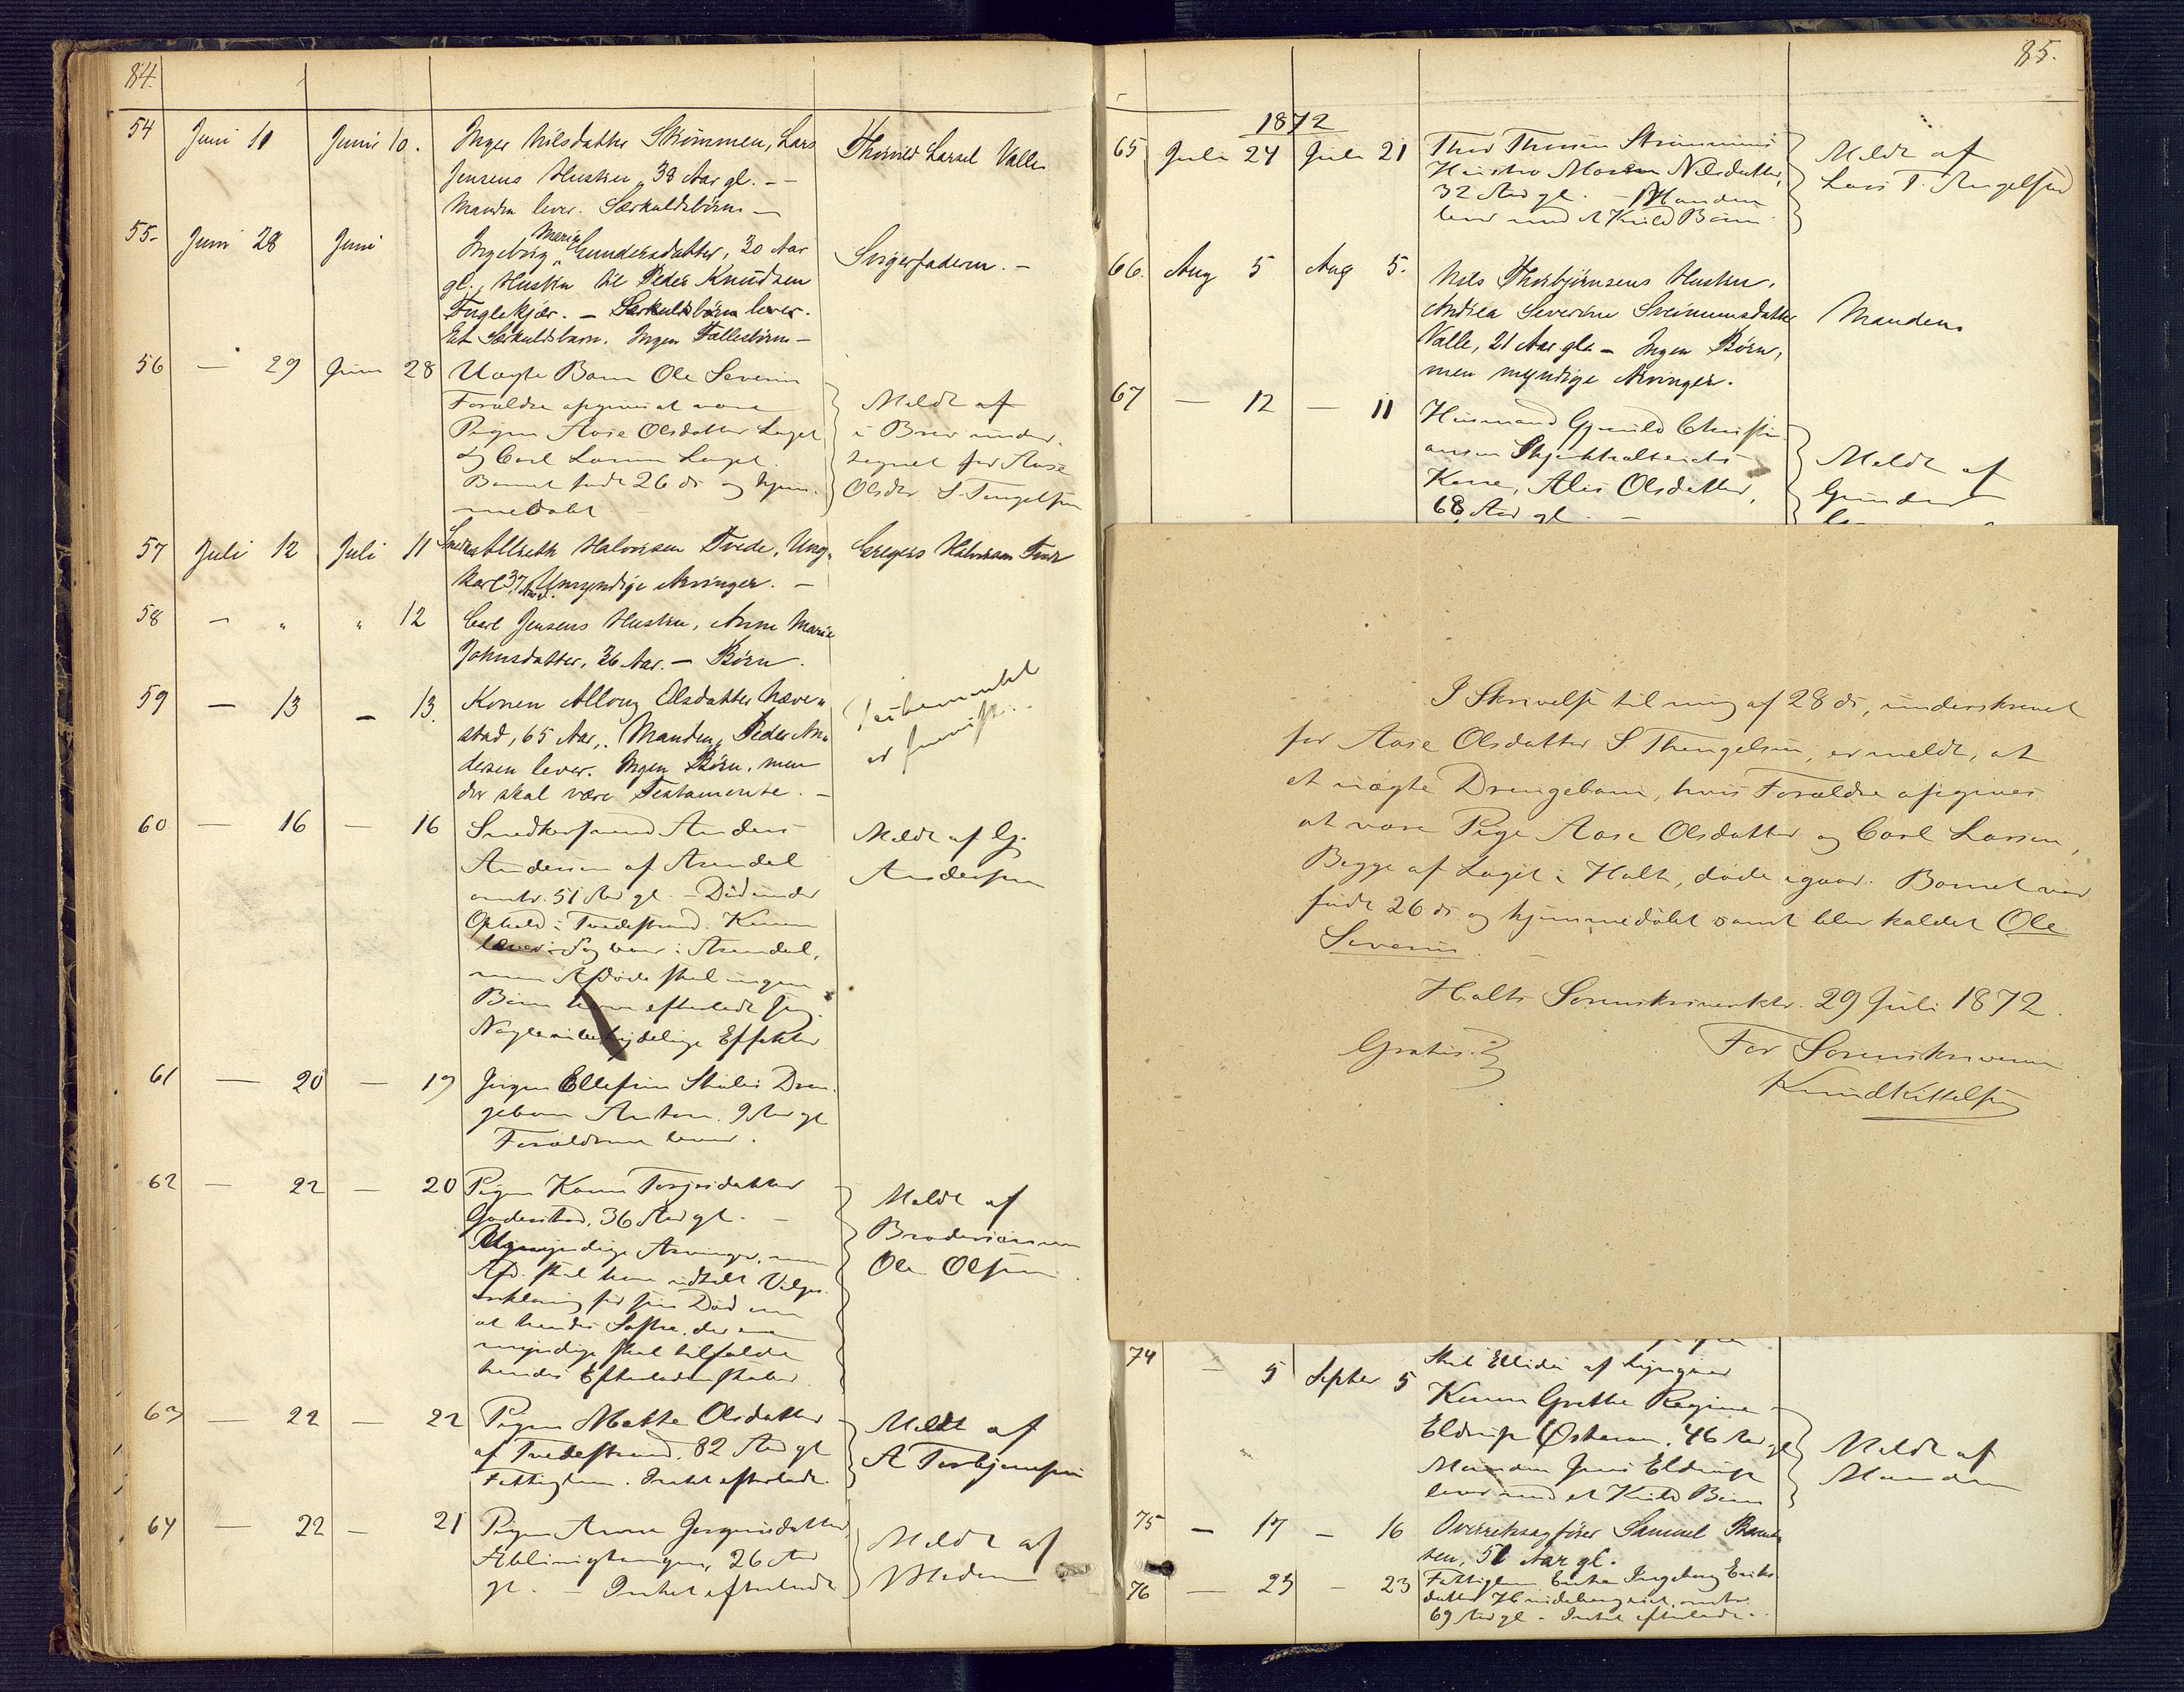 84.
54 Juni 11 Juni 10. Inger Nilsdatter Strømmen, Lars Thorvild Larsel Valle
Jensens Hustru, 38 Aar gl. —
Manden lever. Særkuldsbørn —
55. Juni 28 Juni Ingeborg Marie Gundersdatter, 30 Aar Svigerfaderen. —
gl., Hustru til Peder Knudsen
Fuglekjær. — Særkuldsbørn lever.
Et Særkuldsbarn. Ingen Fællesbørn —
56 — 29 Juni 28 Uægte Barn Ole Severin
Forældre opgives at være Meldt af
Pigen Aase Olsdatter Laget i Brev under-
og Carl Larsen Laget. tegnet for Aase
Barnet født 26 ds og hjem- Olsdtr S. Tengelsen
medøbt —
57 Juli 12 Juli 11 Halvorsen Tvede, Ung- Gregers Halvorsen Tvede
karl 37 Aar. Umyndige Arvinger. —
58 — " " 12 Carl Jensens Hustru, Anne Marie
Johnsdatter, 36 Aar. — Børn.
59 — 13 — 13. Konen Alloug Olsdatter Næve- Testamentet
stad, 65 Aar, Manden, Peder An- er forevist.
dersen lever. Ingen Børn, men
der skal være Testamente. —
60 — 16 — 16 Snedkersvend Anders Meldt af Gj.
Andersen af Arendal Andersen
omtr. 51 Aar gl. — Død under
Ophold i Tvedestrand. Konen
lever i Arendal,
men Afdøde skal ingen
Børn have efterladt sig.
Nogle ubetydelige Effekter
61 — 20 — 19 Jørgen Ellefsen Skutes Dren-
gebarn Anton. 9 Aar gl
Forældrene lever.
62 — 22 — 20 Pigen Karen Torjesdatter Meldt af
Goderstad, 36 Aar gl. — Brodersønnen
Umyndige Arvinger, men Ole Olsen
Afd. skal have udtalt Vilje-
erklæring før sin Død om
at hendes Søstre, der ere
myndige skal tilfalde
hendes Efterladenskaber
63 — 22 — 22 Pigen Mette Olsdatter Meldt af
af Tvedestrand, 82 Aar gl A Torbjørnsen
Fattiglem. Intet efterladt.
64 — 22 — 21 Pigen Anna Jørgensdatter Meldt af
26 Aar Moderen
gl. — Intet efterladt
85.
1872
65 Juli 24 Juli 21 Thor Thorsen Strømmens Meldt af
Hustru Maren Nilsdatter, Lars T. Angelstad
32 Aar gl. — Manden
lever med et Kuld Børn
66. Aug 5 Aug 5. Nils Thorbjørnsens Hustru,
Andrea Severine Sveinumsdatter Manden
Valle, 21 Aar gl. — Ingen Børn,
men myndige Arvinger.
67 — 12 — 11 Husmand Gjeruld Christi-
ansen Skjerkholteiets Meldt af
Kone, Alis Olsdatter, Gunder
68 Aar gl. —
I Skrivelse til mig af 28 ds, underskrevet
for Aase Olsdatter S. Thengelsen, er meldt, at
et uægte Drengebarn, hvis Forældre opgives
at være Pige Aase Olsdatter og Carl Larsen,
Begge af Laget i Holt, døde igaar. Barnet var
født 26 ds og hjemmedøbt samt blev kaldet Ole
Severin. —
Holts Sorenskriverktr. 29 Juli 1872.
Gratis. For Sorenskriveren
Knud Kittelsen
74 — 5 Septbr 5 af Lyngør
Konen Grethe Regine
Eldrup Østeraa. 46 Aar gl Meldt af
Manden Jens Eldrup Manden
lever med et Kuld Børn
75 — 17 — 16 Overretssagfører Samuel
sen, 51 Aar gl.
76 — 23 — 23 Fattiglem Enke Ingeborg Eriks-
datter omtr.
69 Aar gl. — Intet efterladt.